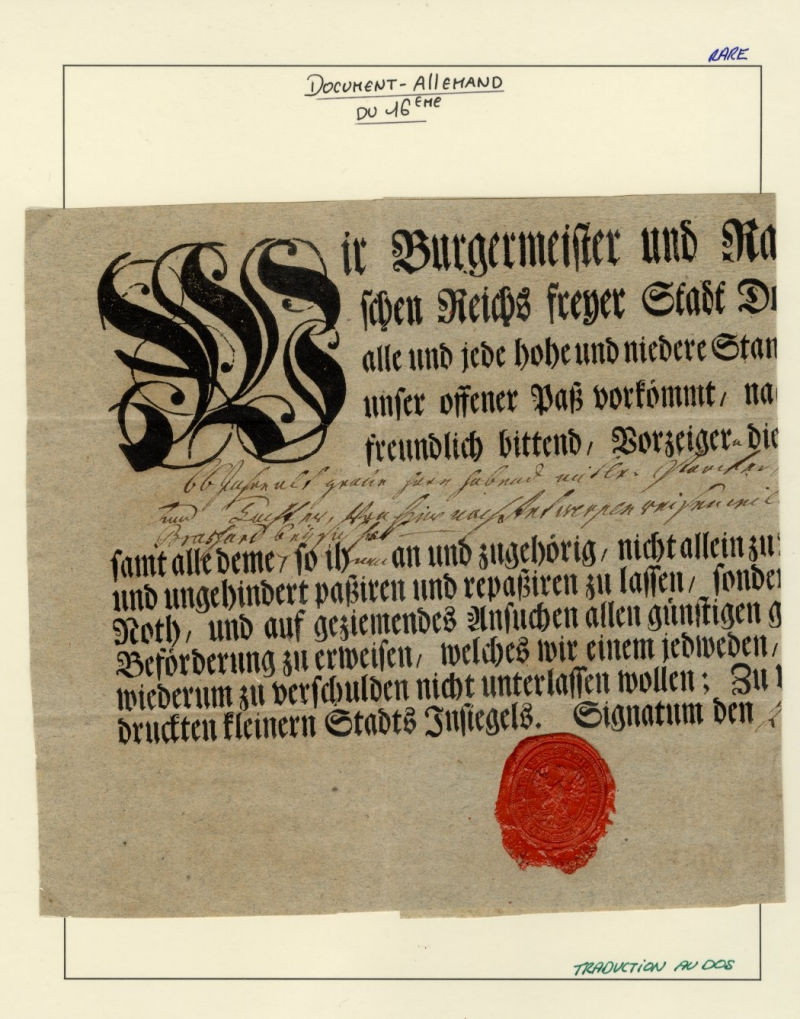 RARE
DOCUMENT-ALLEMAND
DU 16ÈME
Wir Burgermeister und Ra
schen Reichs freyer Stadt D
alle und jede hohe und niedere Stan
unser offener Paß vorkömmt, na
freundlich bittend, Vorzeiger die
66 Jahr alt haar habend
und Tochter, von hier nach Antwerpen reisen
bey sich hat
samt alle deme, so ih an und zugehörig, nicht allein zu
und ungehindert paßiren und repaßiren zu lassen, sonde
Noth, und auf geziemendes Ansuchen allen günstigen g
Beförderung zu erweisen, welches wir einem jedweden,
wiederum zu verschulden nicht unterlassen wollen; Zu
druckten kleinern Stadts Insiegels. Signatum den
TRADUCTION AU DOS